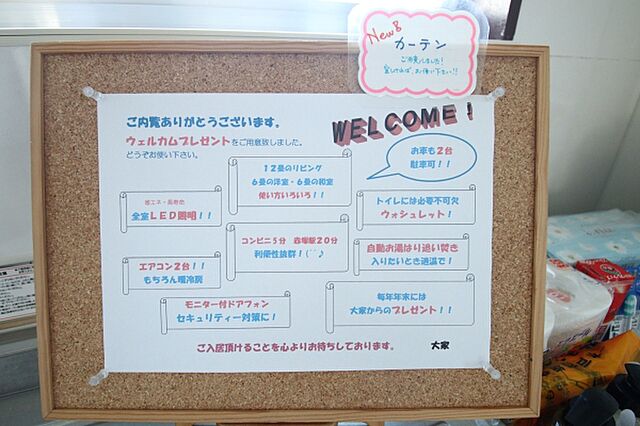 New!
カーテン
ご用意しました！
宜しければ、お使い下さい！！
WELCOME！
ご内覧ありがとうございます。
ウェルカムプレゼントをご用意致しました。
どうぞお使い下さい。
１２畳のリビング
６畳の洋室・６畳の和室
使い方いろいろ！！
お車も２台
駐車可！！
省エネ・長寿命
全室ＬＥＤ照明！！
トイレには必要不可欠
ウォシュレット！
コンビニ５分　赤塚駅２０分
利便性抜群！(^^♪
自動お湯はり追い焚き
入りたいとき適温で！
エアコン２台！！
もちろん暖冷房
モニター付ドアフォン
セキュリティー対策に！
毎年年末には
大家からのプレゼント！！
ご入居頂けることを心よりお待ちしております。
大家